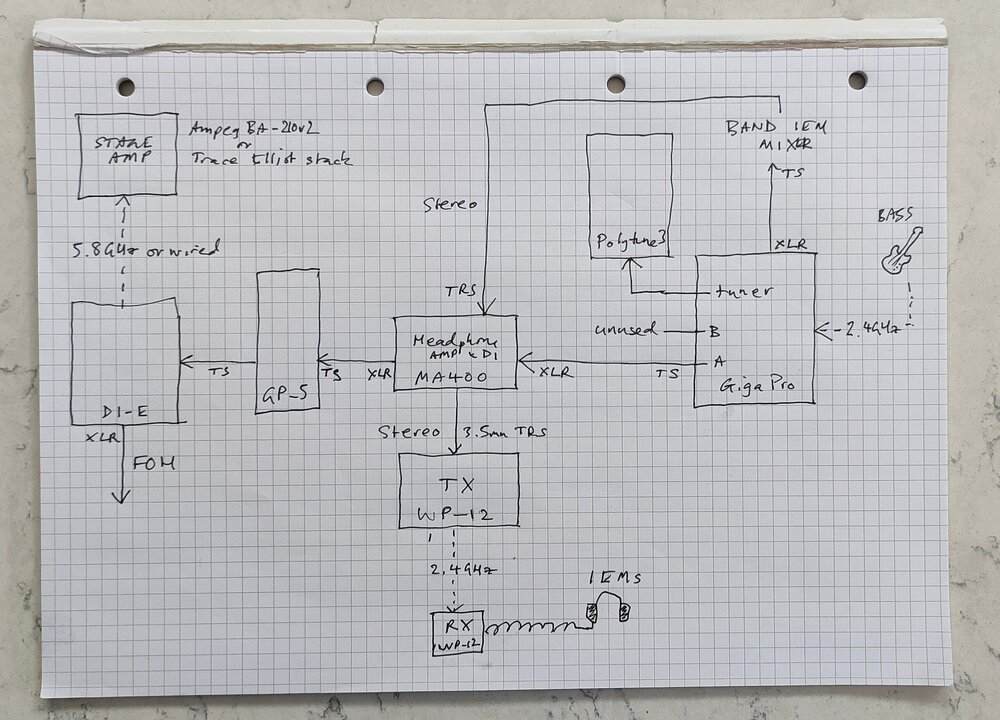 STAGE
AMP
Ampeg BA-210v2
or
Trace Elliot stack
BAND IEM
MIXER
TS
XLR
Stereo
TRS
Polytune3
BASS
5.8GHz or wired
tuner
unused
B
2.4GHz
A
Giga Pro
TS
XLR
Headphone
AMP x DI
MA400
XLR
TS
GP-5
TS
DI-E
XLR
FOH
Stereo
3.5mm TRS
TX
WP-12
2.4GHz
IEMs
RX
WP-12